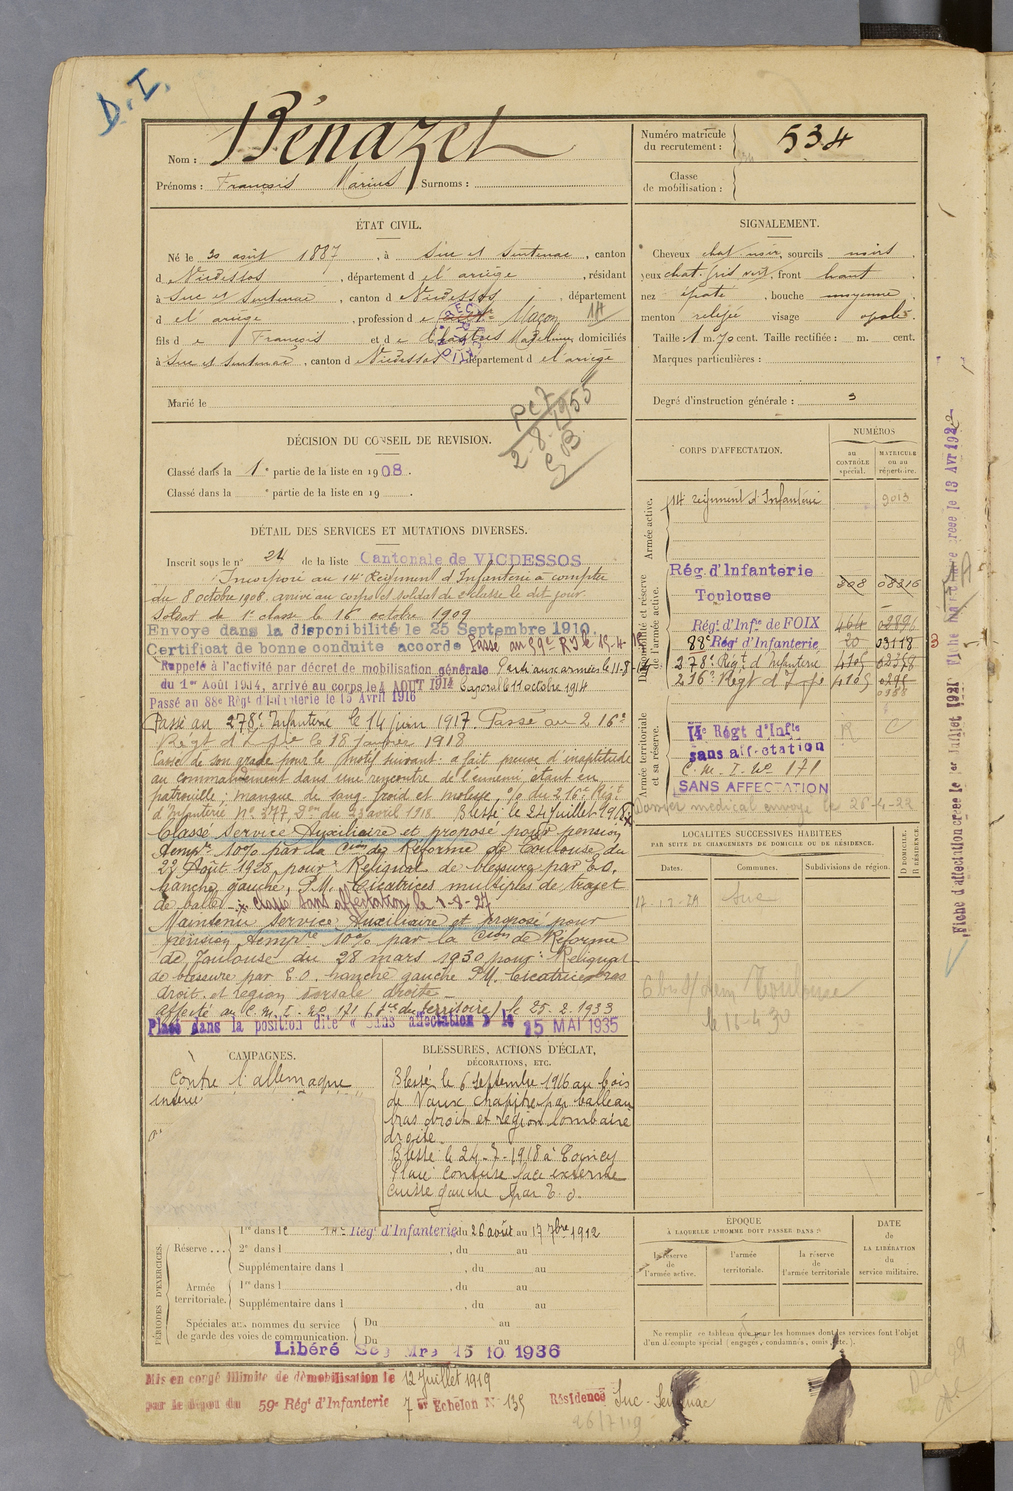 D. I.
Nom : Bénazet
Prénoms : François Marius Surnoms :
Numéro matricule
du recrutement : 534
Classe
de mobilisation :
ÉTAT CIVIL.
Né le 30 août 1887, à Suc et Sentenac, canton
d e Vicdessos, département d el ariège, résidant
à Suc et Sentenac, canton d e Vicdessos, département
d el ariège, profession d e Maçon 14
fils d e François et d e domiciliés
à Suc et Sentenac, canton d e Vicdessos département d el ariège
Marié le
SIGNALEMENT.
Cheveux chat. noir, sourcils noirs,
yeux chat. gris vert, front haut
nez épaté, bouche moyenne,
menton relifée visage ovale.
Taille : 1 m. 70 cent. Taille rectifiée : m. cent.
Marques particulières :
Degré d'instruction générale : 3
PC7
2-8-1955
DÉCISION DU CONSEIL DE REVISION.
Classé dans la 1e partie de la liste en 1908.
Classé dans la e partie de la liste en 19 .
DÉTAIL DES SERVICES ET MUTATIONS DIVERSES.
Inscrit sous le n° 24 de la liste Cantonale de VICDESSOS
Incorporé au 14e Régiment d'Infanterie à compter
du 8 octobre 1908, arrivé au corps et soldat de 2e classe le dit jour.
Soldat de 1e classe le 16 octobre 1909
Envoyé dans la disponibilité le 25 Septembre 1910.
Certificat de bonne conduite accordé Passé au 59e R.I. le 15-4-
Rappelé à l'activité par décret de mobilisation générale Parti aux armées le 11-8-14
du 1er Août 1914, arrivé au corps le 4 AOUT 1914 Caporal le 11 octobre 1914
Passé au 88e Régt d'Infanterie le 15 Avril 1916
Passé au 278e Infanterie le 14 juin 1917. Passé au 216e
Régt d'Infie le 18 janvier 1918
Cassé de son grade pour le motif suivant : a fait preuve d'inaptitude
au commandement dans une rencontre de l'ennemi étant en
patrouille ; manque de sang-froid et molesse, O/ du 216e Régt
d'Infanterie N° 377, Don du 23 avril 1918. Blessé le 24 juillet 1918
Classé Service Auxiliaire et proposé pour pension
tempre 10% par la Cion de Réforme de Toulouse du
22 Août 1928, pour : Reliquat de blessure par E.O.
hanche gauche, P.M. Cicatrices multiples de trajet
de balle - classé sans affectation le 1-8-27
Maintenu Service Auxiliaire et proposé pour
pension tempre 10% par la Cion de Réforme
de Toulouse du 28 mars 1930 pour : Reliquat
de blessure par E.O. hanche gauche P.M. Cicatrices bras
droit et région dorsale droite -
Affecté au C.M.I. N° 171 (du territoire) le 25-2-1933
Placé dans la position dite « Sans affectation » le 15 MAI 1935
CORPS D'AFFECTATION.
NUMÉROS
au
CONTRÔLE
spécial.
MATRICULE
ou au
répertoire.
Armée active.
14 régiment d'Infanterie 9013
Disponibilité et réserve
de l'armée active.
Rég. d'Infanterie
Toulouse 308 08216
Régt d'Infie de FOIX 464
88e Régt d'Infanterie 20 03118 3
278e Régt d'Infanterie 4105 02378
216e Régt d'Infie 4105
0388
Armée territoriale
et sa réserve.
14e Régt d'Infie
sans affectation
C.M.I. N° 171
SANS AFFECTATION
R C
Dossier médical envoyé le 26-4-22
LOCALITÉS SUCCESSIVES HABITÉES
PAR SUITE DE CHANGEMENTS DE DOMICILE OU DE RÉSIDENCE.
Dates. Communes. Subdivisions de région. D DOMICILE. R RÉSIDENCE.
Suc
Toulouse
le 11-4 30
CAMPAGNES.
Contre l'allemagne
BLESSURES, ACTIONS D'ÉCLAT,
DÉCORATIONS, ETC.
Blessé le 6 septembre 1916 au bois
de Vaux Chapître par balle au
bras droit et région lombaire
droite.
Blessé le 24-7-1918 à Coincy
Plaie contuse face externe
cuisse gauche par E.O.
PÉRIODES D'EXERCICES.
Réserve ...
1re dans le 14e Régt d'Infanterie du 26 août au 17 7bre 1912
2e dans l , du au
Supplémentaire dans l , du au
Armée
territoriale.
1re dans l , du au
Supplémentaire dans l , du au
Spéciales aux hommes du service
de garde des voies de communication.
Du au
Du au
Libéré Ser Mre 15 10 1936
ÉPOQUE
À LAQUELLE L'HOMME DOIT PASSER DANS :
la réserve
de
l'armée active.
l'armée
territoriale.
la réserve
de
l'armée territoriale
DATE
de
LA LIBÉRATION
du
service militaire.
Ne remplir ce tableau que pour les hommes dont les services font l'objet
d'un décompte spécial (engagés, condamnés, omis, etc.).
Mis en congé illimité de démobilisation le 12 Juillet 1919
par le dépôt du 59e Régt d'Infanterie 7e Echelon N° 135 Résidence Suc-Sentenac
26/7/19
Fiche d'affectation créée le 1er Juillet 1921